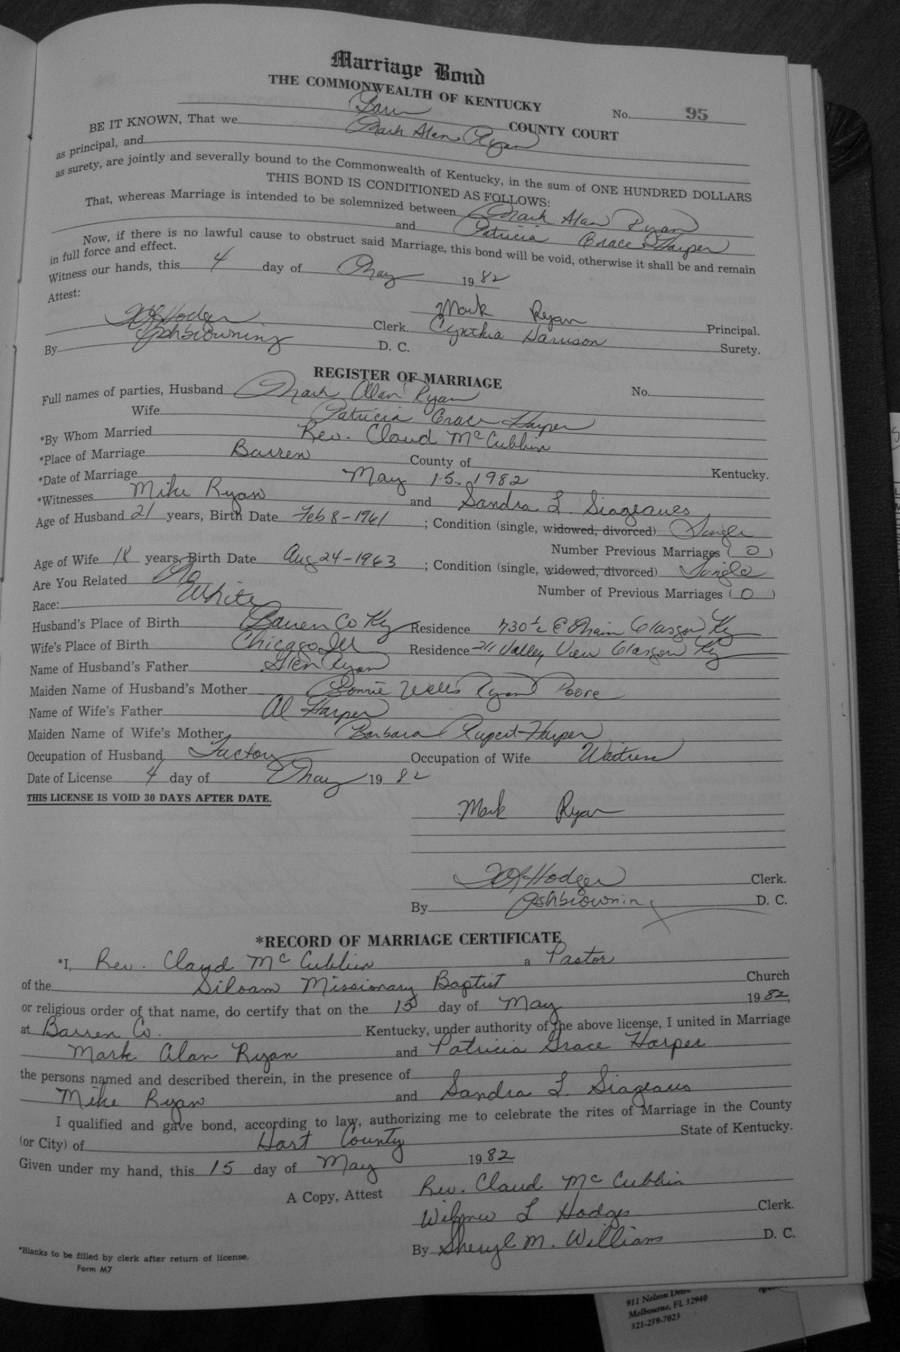 Marriage Bond
THE COMMONWEALTH OF KENTUCKY
No. 95
COUNTY COURT
BE IT KNOWN, That we Mark Alan Ryan
as principal, and
as surety, are jointly and severally bound to the Commonwealth of Kentucky, in the sum of ONE HUNDRED DOLLARS
THIS BOND IS CONDITIONED AS FOLLOWS:
That, whereas Marriage is intended to be solemnized between Mark Alan Ryan
and Patricia Grace Harper
Now, if there is no lawful cause to obstruct said Marriage, this bond will be void, otherwise it shall be and remain
in full force and effect.
Witness our hands, this 4 day of May 1982
Attest:
Mark Ryan Principal.
Hodges Clerk Cynthia Harrison Surety.
By D. C.
REGISTER OF MARRIAGE
Full names of parties, Husband Mark Alan Ryan No.
Wife Patricia Grace Harper
*By Whom Married Rev. Claud McCubbin
*Place of Marriage Barren County of Kentucky.
*Date of Marriage May 15, 1982
*Witnesses Mike Ryan and Sandra L. Siageaues
Age of Husband 21 years, Birth Date Feb 8-1961; Condition (single, widowed, divorced) Single
Number Previous Marriages (0)
Age of Wife 18 years, Birth Date Aug 24-1963; Condition (single, widowed, divorced) Single
Are You Related No Number of Previous Marriages (0)
Race: White
Husband's Place of Birth Barren Co Ky Residence 430½ E Main Glasgow Ky
Wife's Place of Birth Chicago Ill Residence 211 Valley View Glasgow Ky
Name of Husband's Father Glen Ryan
Maiden Name of Husband's Mother Wells Ryan Poore
Name of Wife's Father Al Harper
Maiden Name of Wife's Mother Barbara Rupert Harper
Occupation of Husband Factory Occupation of Wife Waitress
Date of License 4 day of May 1982
THIS LICENSE IS VOID 30 DAYS AFTER DATE.
Mark Ryan
Hodges Clerk.
By D. C.
*RECORD OF MARRIAGE CERTIFICATE
*I, Rev. Claud McCubbin a Pastor
of the Siloam Missionary Baptist Church
or religious order of that name, do certify that on the 15 day of May 1982,
at Barren Co. Kentucky, under authority of the above license, I united in Marriage
Mark Alan Ryan and Patricia Grace Harper
the persons named and described therein, in the presence of
Mike Ryan and Sandra L. Siageaus
I qualified and gave bond, according to law, authorizing me to celebrate the rites of Marriage in the County
(or City) of Hart County State of Kentucky.
Given under my hand, this 15 day of May 1982
A Copy, Attest Rev. Claud McCubbin
L Hodges Clerk.
By Sheryl M. Williams D. C.
*Blanks to be filled by clerk after return of license.
Form M7
911 Nelson
Melbourne, FL 32940
321-259-7023